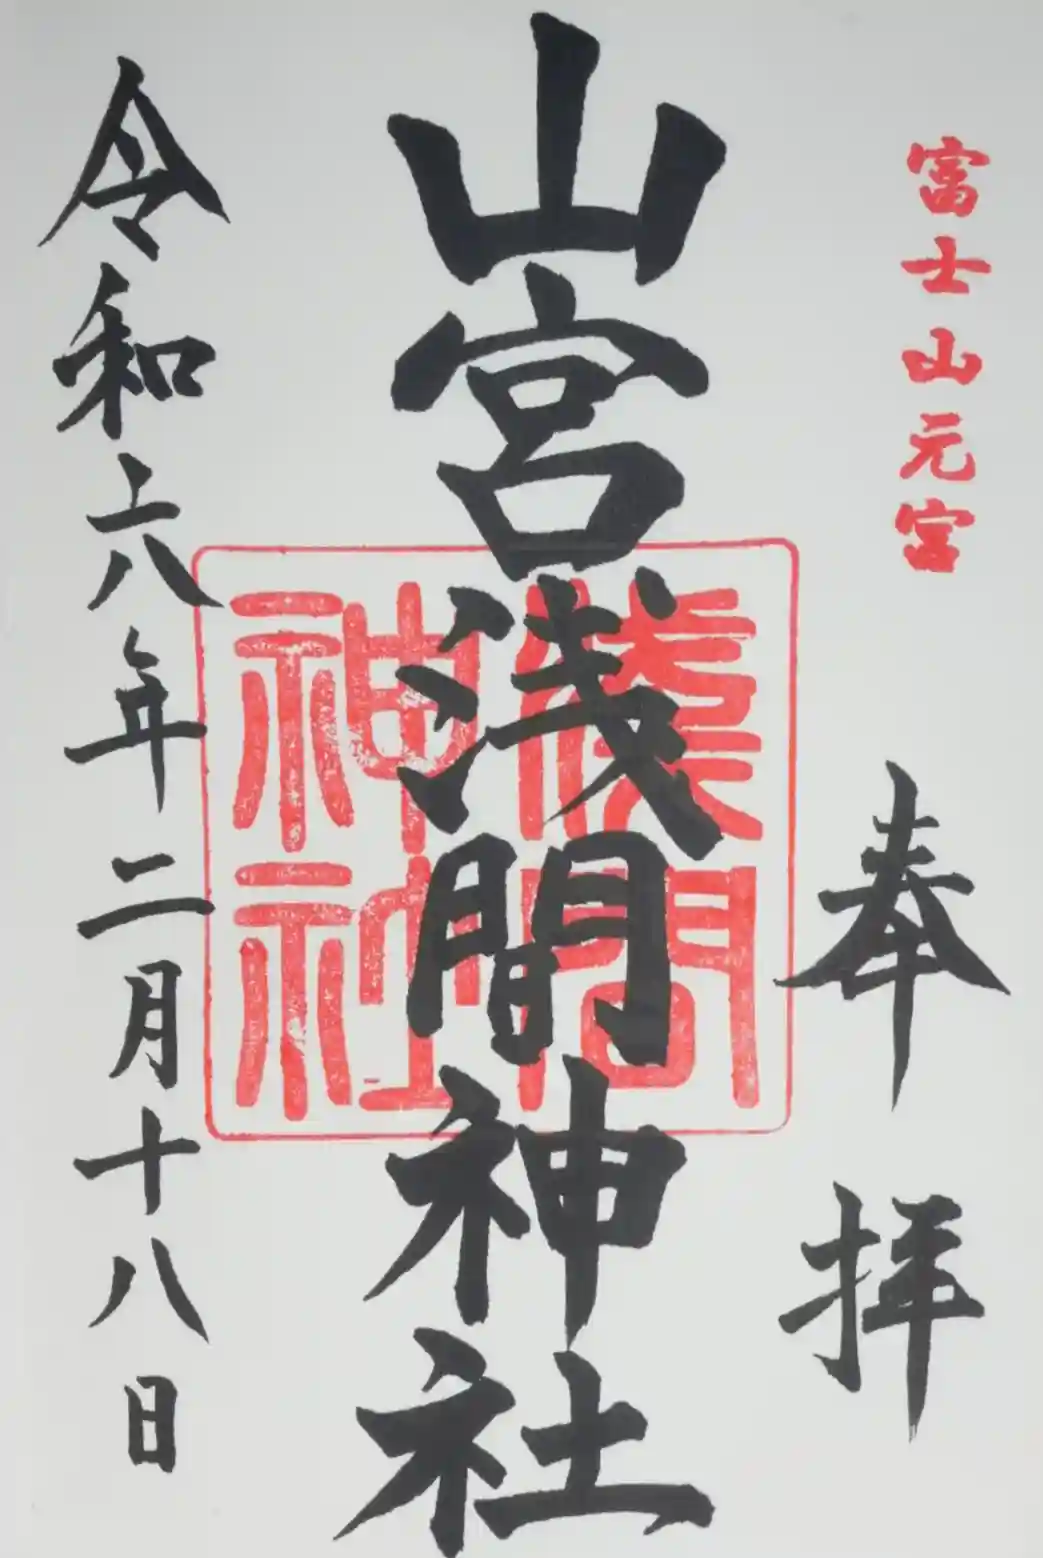 富士山元宮
奉拝
山宮浅間神社
浅間
神社
令和六年二月十八日